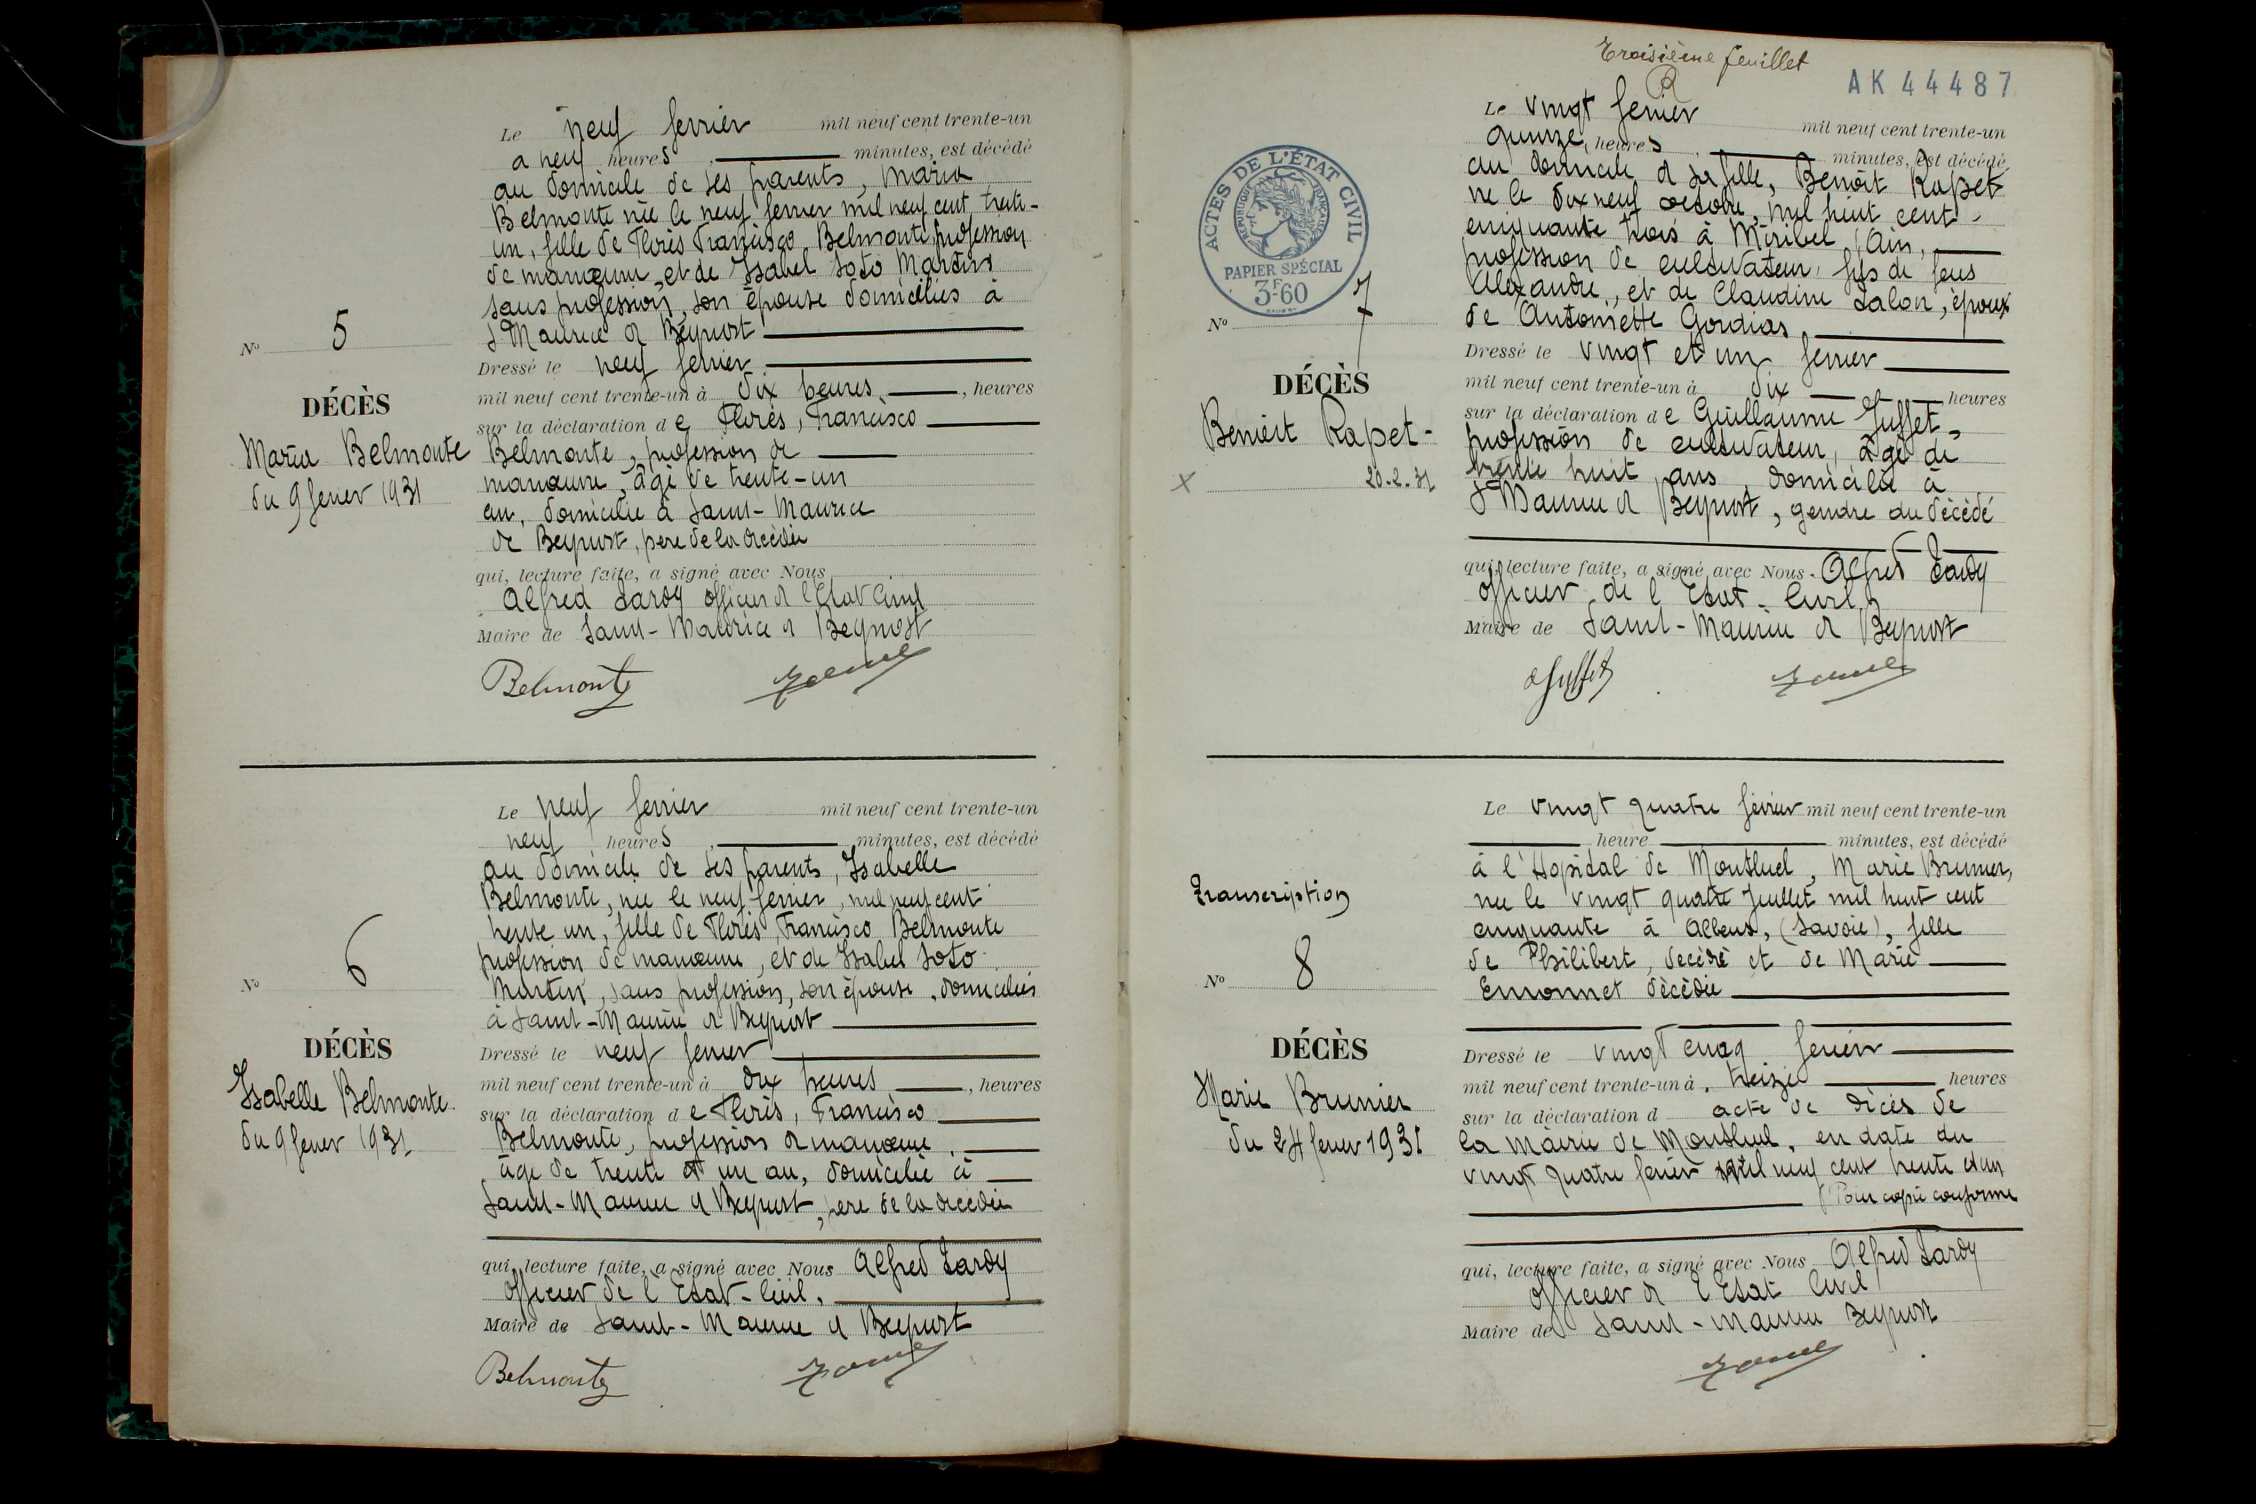 Le neuf fevrier mil neuf cent trente-un
a neuf heures minutes, est décédé
au domicile de ses parents, Maria
Belmonte née le neuf fevrier mil neuf cent trente-
un, fille de Florès Francisco Belmonte, profession
de manœuvre, et de Isabel Soto Martin
sans profession, son épouse domiciliés à
St Maurice de Beynost
N° 5
Dressé le neuf fevrier
mil neuf cent trente-un à dix heures, heures
DÉCÈS
sur la déclaration de Florès, Francisco
Maria Belmonte
Belmonte, profession de
manœuvre, âgé de trente-un
du 9 fevrier 1931
an, domicilié à Saint-Maurice
de Beynost, père de la décédée
qui, lecture faite, a signé avec Nous
Alfred Tardy officier de l'État Civil
Maire de Saint-Maurice de Beynost
Belmonte
Le neuf fevrier mil neuf cent trente-un
neuf heures minutes, est décédé
au domicile de ses parents, Isabelle
Belmonte, née le neuf fevrier, mil neuf cent
trente un, fille de Florès, Francisco Belmonte
profession de manœuvre, et de Isabel Soto
N° 6
Martin, sans profession, son épouse, domiciliés
à Saint-Maurice de Beynost
DÉCÈS
Dressé le neuf fevrier
mil neuf cent trente-un à dix heures, heures
Isabelle Belmonte
sur la déclaration de Florès, Francisco
du 9 fevrier 1931
Belmonte, profession de manœuvre,
âgé de trente et un an, domicilié à
Saint-Maurice de Beynost, père de la décédée
qui, lecture faite, a signé avec Nous Alfred Tardy
officier de l'Etat-Civil,
Maire de Saint-Maurice de Beynost
Belmonte
Troisième feuillet
AK 44487
Le vingt fevrier mil neuf cent trente-un
quinze, heures minutes, est décédé
au domicile de sa fille, Benoît Rapet
né le dix neuf octobre, mil huit cent
cinquante trois à Miribel, Ain,
profession de cultivateur, fils de feus
Alexandre, et de Claudine Salon, époux
de Antoinette Gordias,
ACTES DE L'ÉTAT CIVIL
RÉPUBLIQUE FRANÇAISE
PAPIER SPÉCIAL
3F60
N° 7
Dressé le vingt et un fevrier
DÉCÈS
mil neuf cent trente-un à dix heures
sur la déclaration de Guillaume Juffet,
Benoît Rapet
profession de cultivateur, âgé de
20-2-31
trente huit ans, domicilié à
St Maurice de Beynost, gendre du décédé
qui, lecture faite, a signé avec Nous Alfred Tardy
officier de l'Etat-Civil,
Maire de Saint-Maurice de Beynost
Juffet
Le vingt quatre février mil neuf cent trente-un
heure minutes, est décédé
à l'Hopital de Montluel, Marie Brunier,
née le vingt quatre Juillet mil huit cent
Transcription
cinquante à Albens, (Savoie), fille
de Philibert, décédé et de Marie
N° 8
Emonnet décédée
DÉCÈS
Dressé le vingt cinq fevrier
Marie Brunier
mil neuf cent trente-un à treize heures
sur la déclaration d acte de décès de
du 24 fevrier 1931
la mairie de Montluel, en date du
vingt quatre fevrier mil neuf cent trente et un
Pour copie conforme
qui, lecture faite, a signé avec Nous Alfred Tardy
officier de l'Etat Civil
Maire de Saint-Maurice Beynost